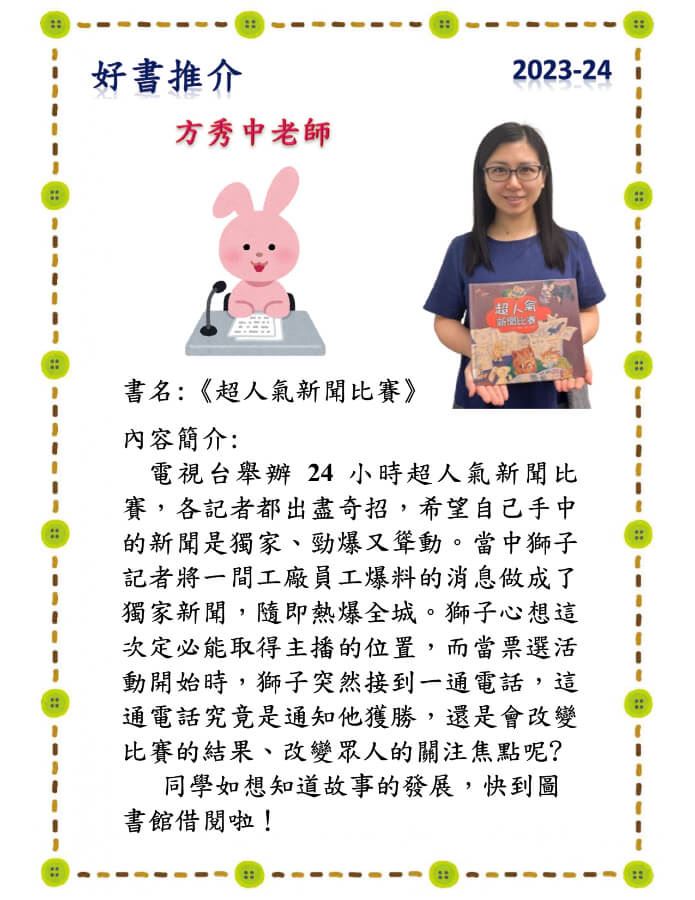 好書推介
2023-24
方秀中老師
超人氣
新聞比賽
書名:《超人氣新聞比賽》
內容簡介:
電視台舉辦 24 小時超人氣新聞比
賽，各記者都出盡奇招，希望自己手中
的新聞是獨家、勁爆又聳動。當中獅子
記者將一間工廠員工爆料的消息做成了
獨家新聞，隨即熱爆全城。獅子心想這
次定必能取得主播的位置，而當票選活
動開始時，獅子突然接到一通電話，這
通電話究竟是通知他獲勝，還是會改變
比賽的結果、改變眾人的關注焦點呢?
同學如想知道故事的發展，快到圖
書館借閱啦！